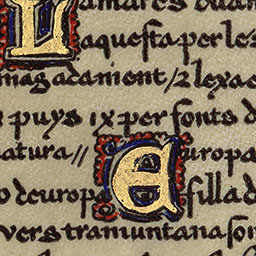 amares duan
L aquesta per les
magadament / 2 lexae
puys ix per fonts d
natura // Europa
o deuropa filla d
vers tramuntana son